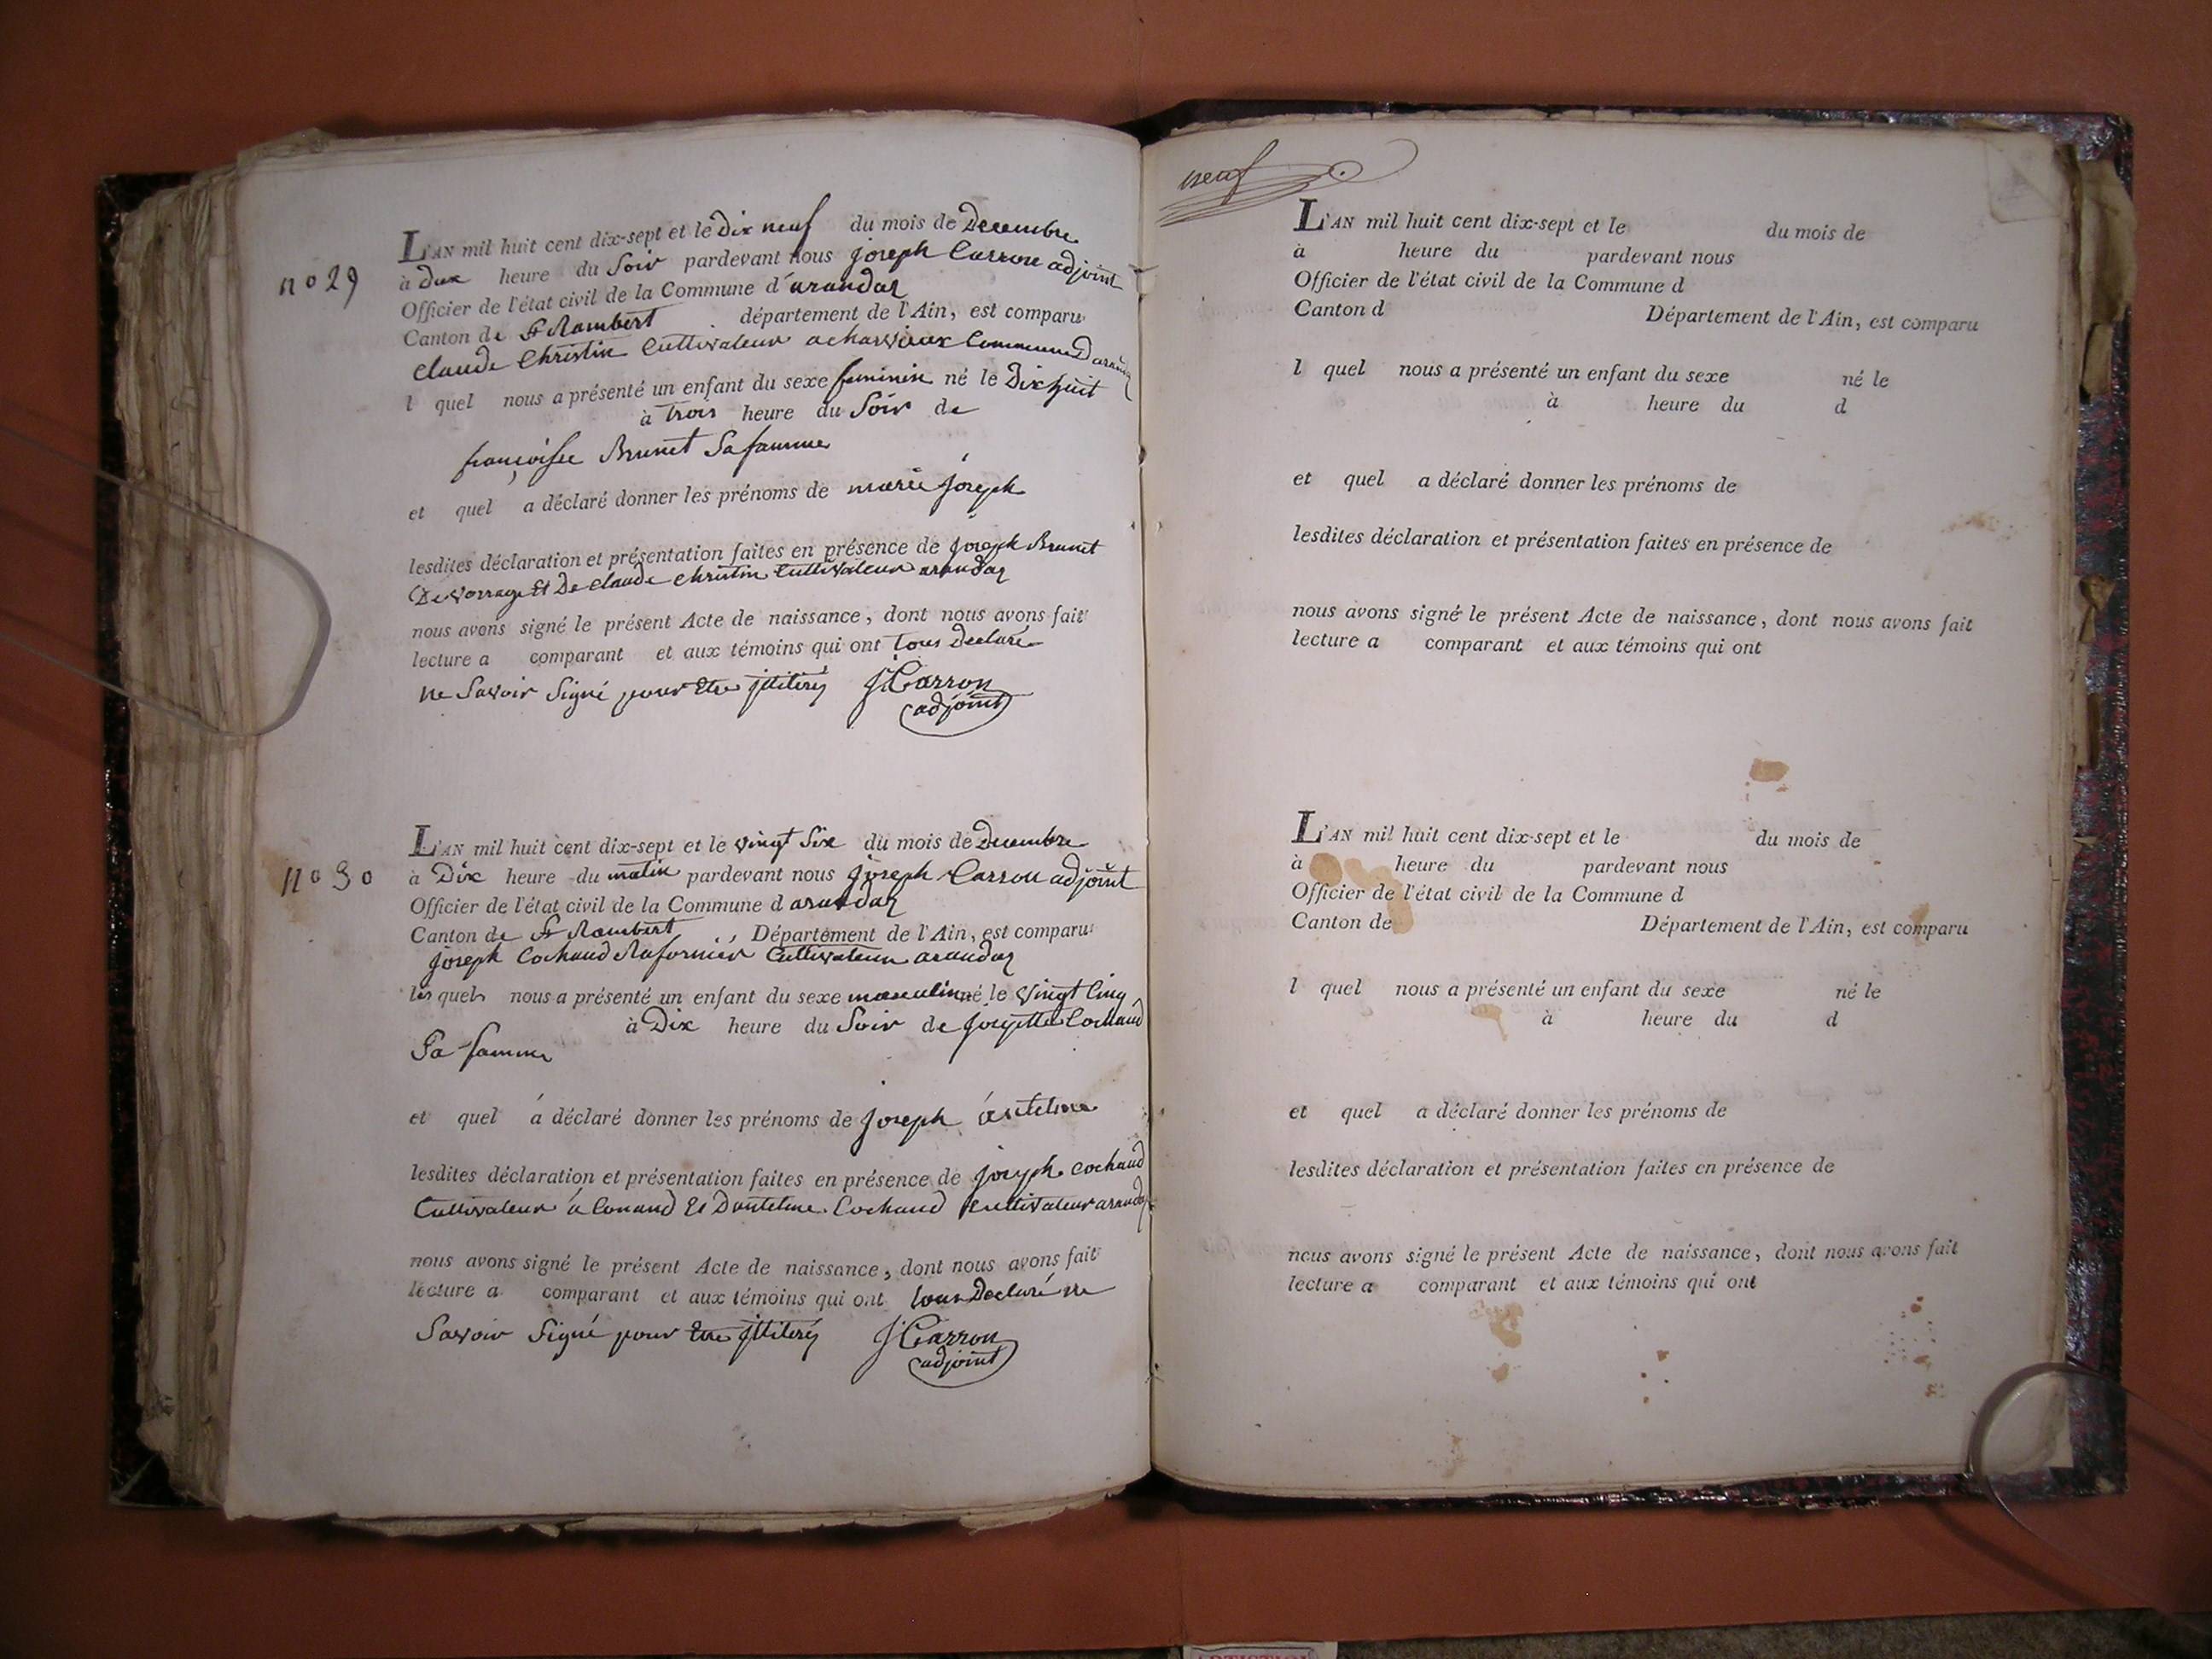 n° 29
L'AN mil huit cent dix-sept et le dix neuf du mois de Decembre
à dux heure du Soir pardevant nous joseph Carron adjoint
Officier de l'état civil de la Commune d'arandas
Canton de St Rambert département de l'Ain, est comparu
claude Christin Cultivateur a Commune Darandas
l quel nous a présenté un enfant du sexe feminin né le Dixhuit
à trois heure du Soir de
françoise Brunet Sa famme
et quel a déclaré donner les prénoms de marie joseph
lesdites déclaration et présentation faites en présence de joseph Brunet
De Et De claude christin Cultivateur arandas
nous avons signé le présent Acte de naissance, dont nous avons fait
lecture a comparant et aux témoins qui ont tous Declaré
ne Savoir Signé pour Etre jlliteré J. Carron
adjoint
n° 30
L'AN mil huit cent dix-sept et le vingt Six du mois de Decembre
à Dix heure du matin pardevant nous joseph Carron adjoint
Officier de l'état civil de la Commune d arandas
Canton de St Rambert Département de l'Ain, est comparu
joseph Cochaud Cultivateur arandas
les quels nous a présenté un enfant du sexe masculin né le Vingt Cinq
à Dix heure du Soir de josephte Cochaud
Sa famme
et quel a déclaré donner les prénoms de joseph antelme
lesdites déclaration et présentation faites en présence de joseph Cochaud
Cultivateur a Conand Et Dantelme Cochaud Cultivateur arandas
nous avons signé le présent Acte de naissance, dont nous avons fait
lecture a comparant et aux témoins qui ont tous Declaré ne
Savoir Signé pour Etre jlliteré J. Carron
adjoint
neuf
L'AN mil huit cent dix-sept et le du mois de
à heure du pardevant nous
Officier de l'état civil de la Commune d
Canton d Département de l'Ain, est comparu
l quel nous a présenté un enfant du sexe né le
à heure du d
et quel a déclaré donner les prénoms de
lesdites déclaration et présentation faites en présence de
nous avons signé le présent Acte de naissance, dont nous avons fait
lecture a comparant et aux témoins qui ont
L'AN mil huit cent dix-sept et le du mois de
à heure du pardevant nous
Officier de l'état civil de la Commune d
Canton de Département de l'Ain, est comparu
l quel nous a présenté un enfant du sexe né le
à heure du d
et quel a déclaré donner les prénoms de
lesdites déclaration et présentation faites en présence de
nous avons signé le présent Acte de naissance, dont nous avons fait
lecture a comparant et aux témoins qui ont